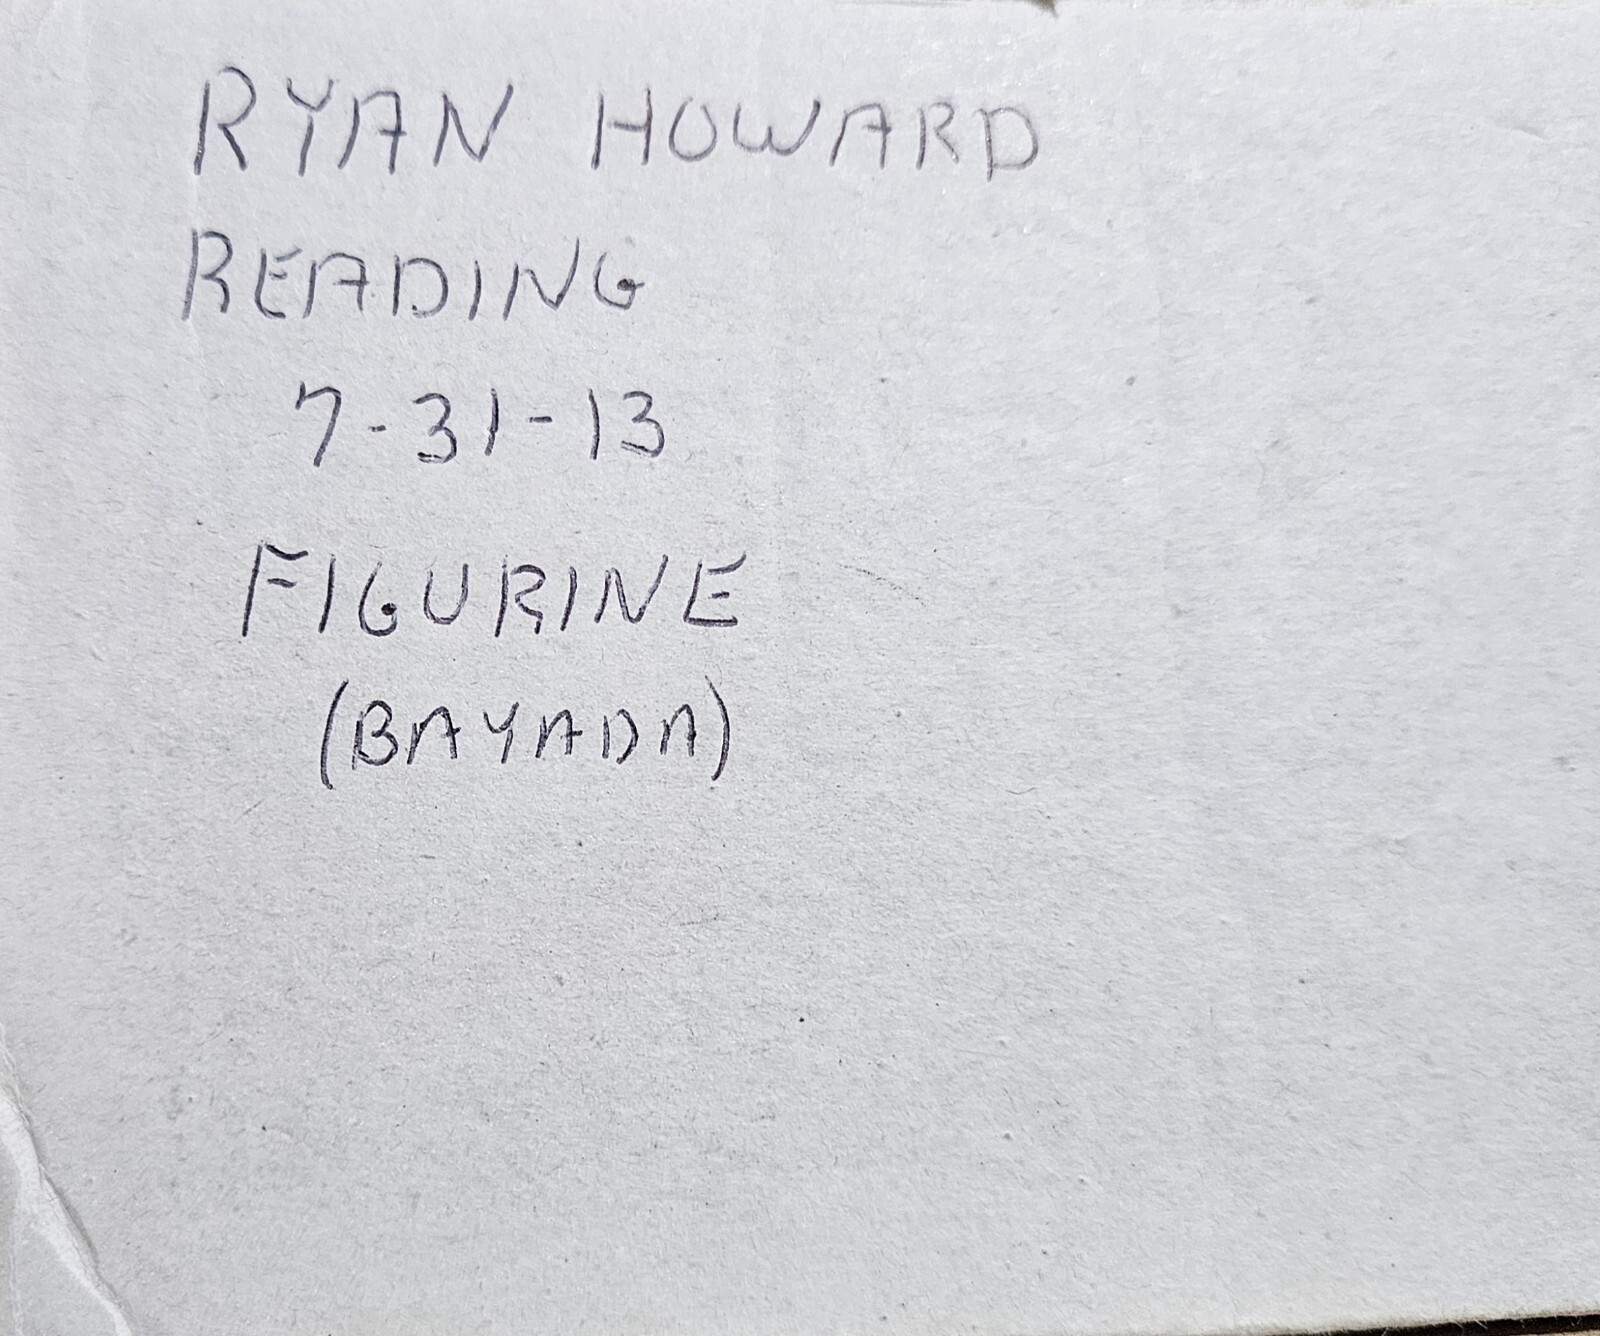 RYAN HOWARD
READING
7-31-13
FIGURINE
(BAYADA)